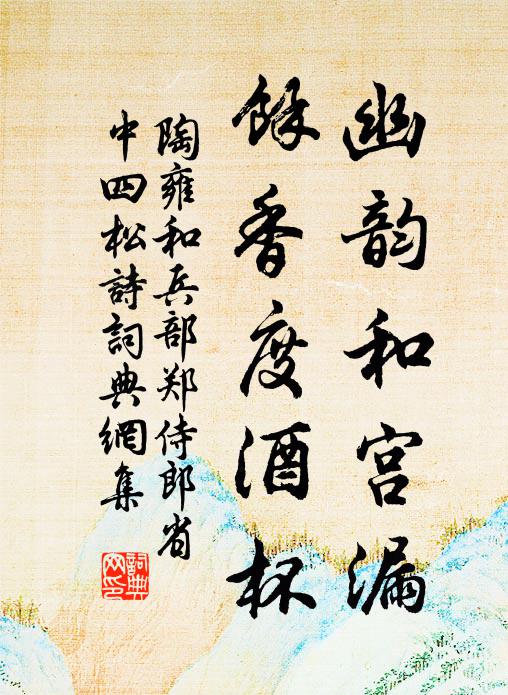 幽韵和宫漏
餘香度酒杯
陶雍和兵部郑侍郎省
中四松詩詞典網集
詞典
网印